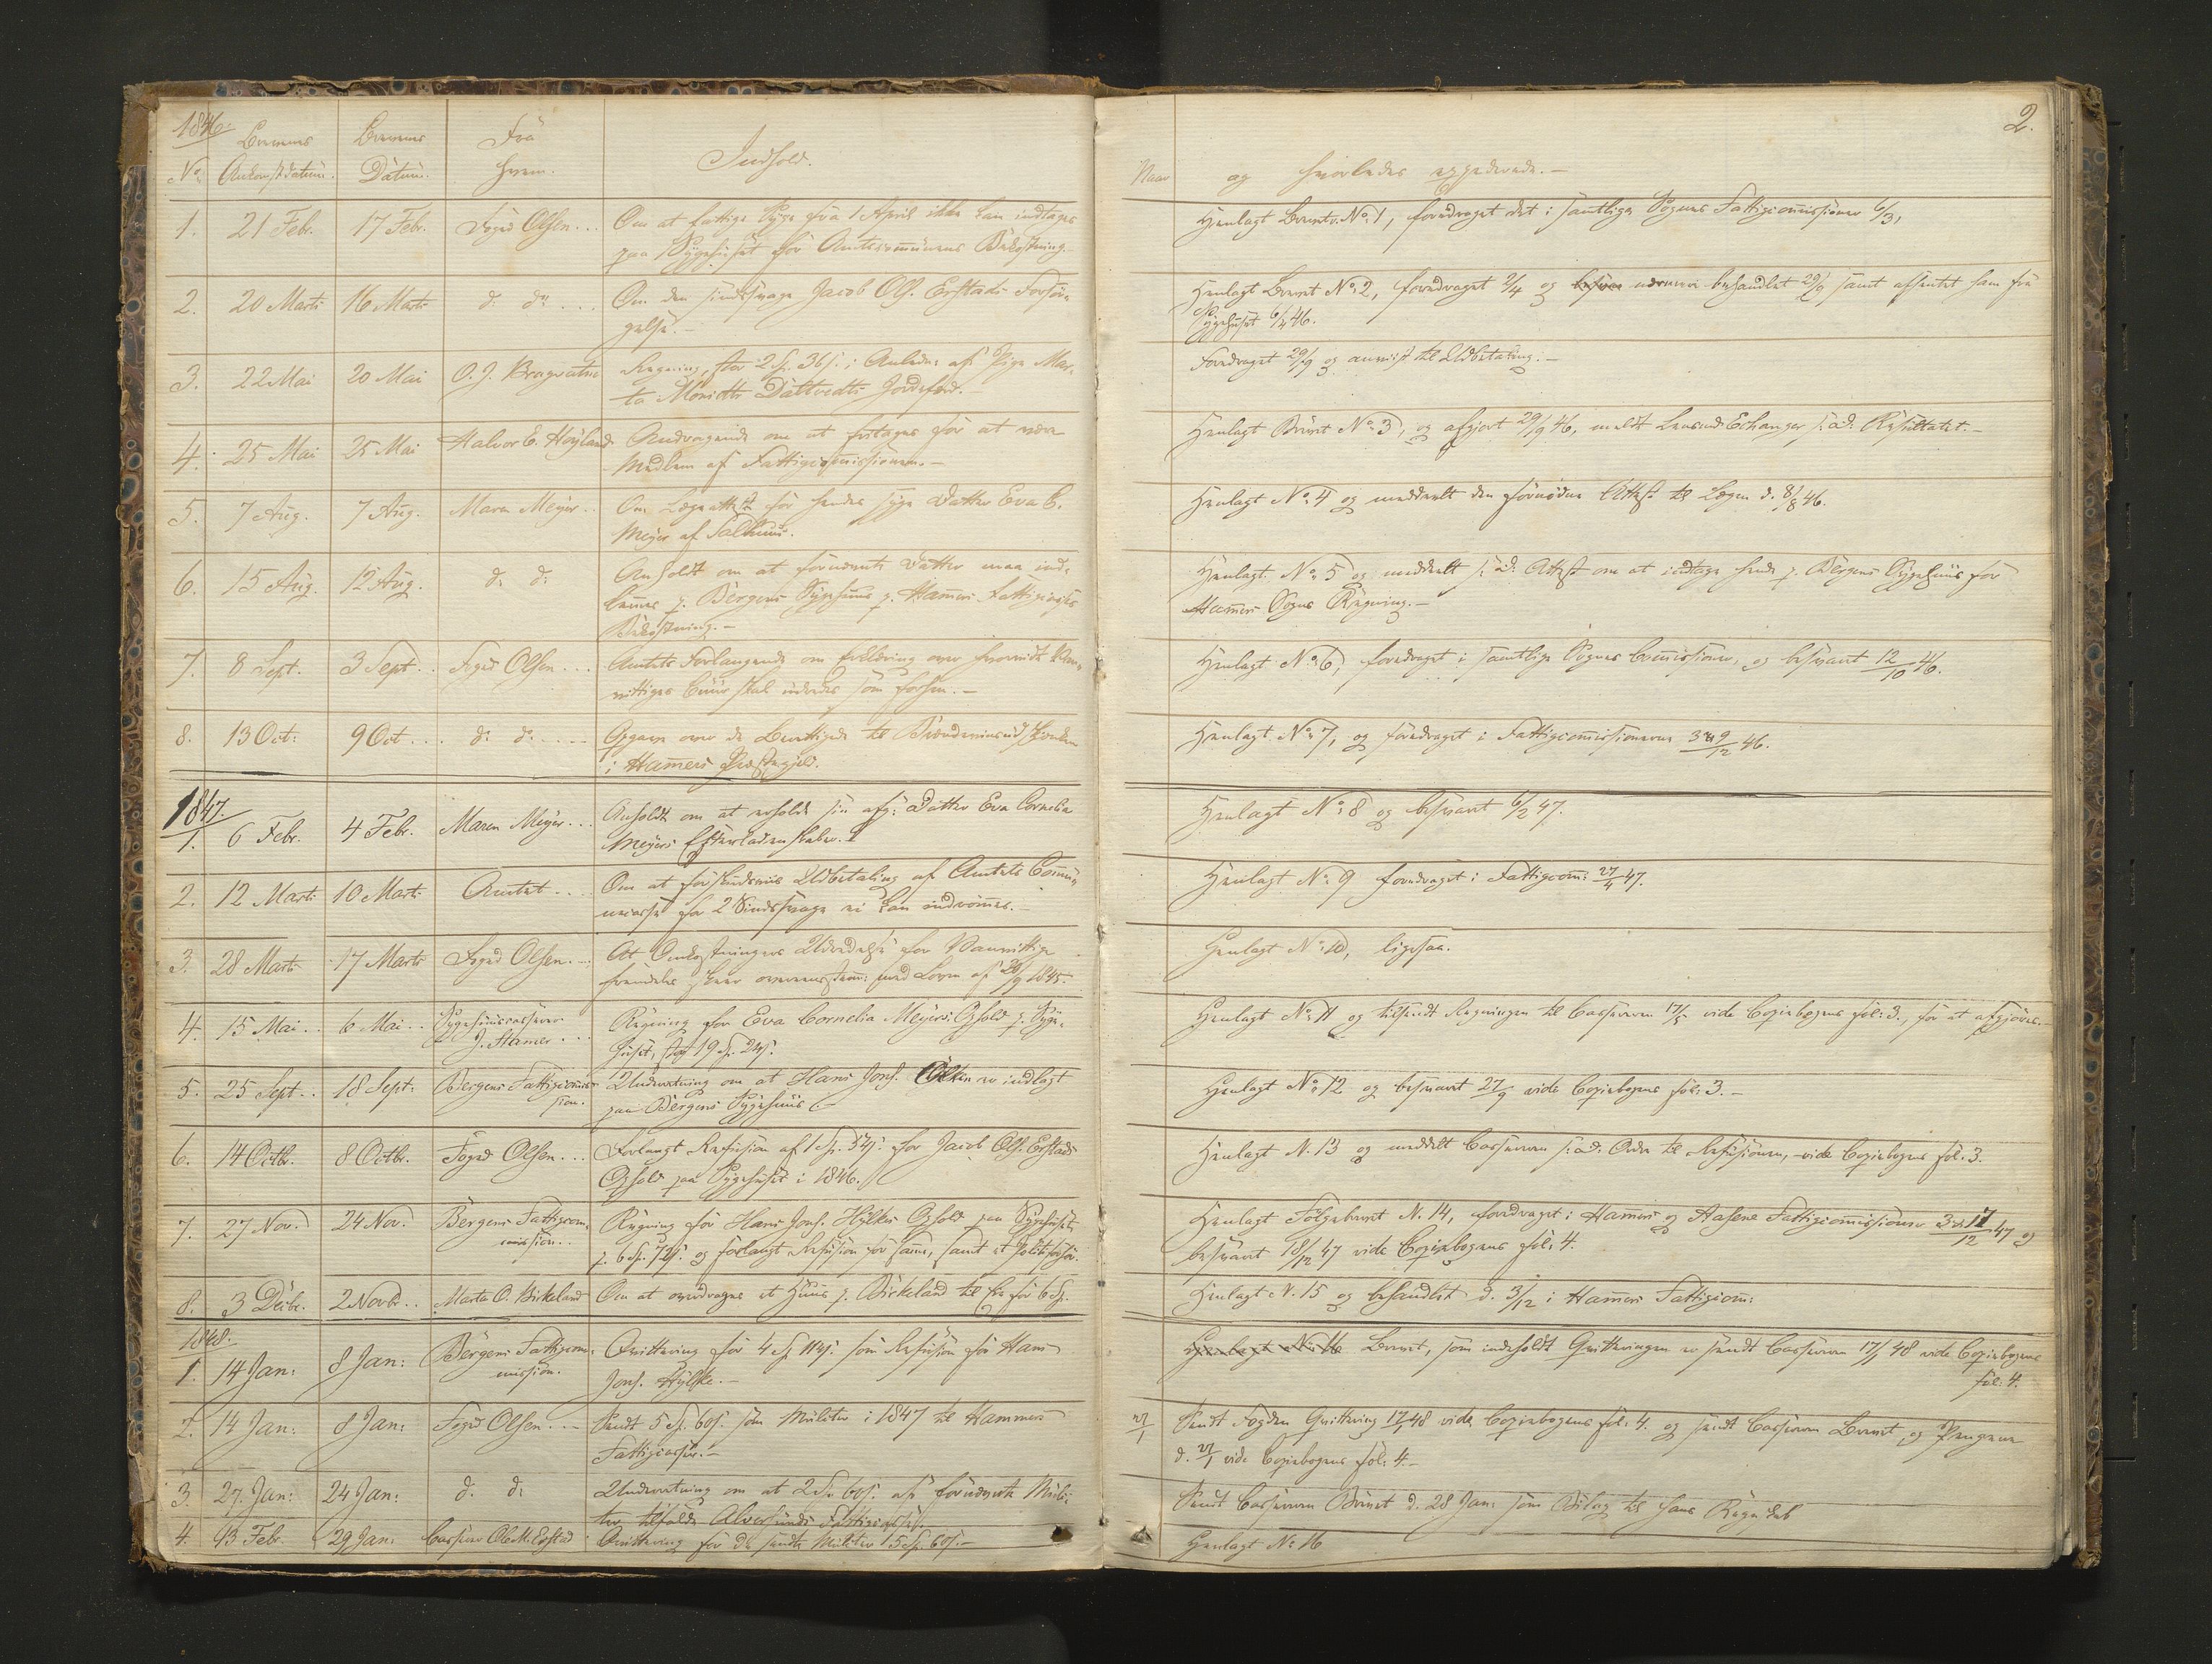 1846.
Brevenes
Brevenes
Fra
2.
No.
Ankomstdatum.
Datum.
hvem.
Indhold.
Naar og hvorledes expederede.—
1. 21 Febr. 17 Febr. Foged Olsen... Om at fattige Syge fra 1 April ikke kan indtages
paa Sygehuset for Amtscommunens Bekostning.
Henlagt Brevet No. 1, foredraget det i samtlige Sognes Fattigcommissioner 6/3,
2. 20 Marts 16 Marts do. do. ... Om den sindssvage Jacob Ols. Erstads Forsør-
gelse.—
Henlagt Brevet No. 2, foredraget 2/4 og nærmere behandlet 29/9 samt afhentet ham fra
Sygehuset 6/4 46.
3. 22 Mai 20 Mai O. J. Bragvatne Regning, stor 2 Sp. 36 s. i Anledn: af Pige Mar-
ta Dattvedts Jordefærd.—
Foredraget 29/9 og anviist til Udbetaling.—
4. 25 Mai 25 Mai Halvor E. Høyland Andragende om at fritages for at være
Medlem af Fattigcommissionen.—
Henlagt Brevet No. 3, og afgjort 29/9 46, meldt Lensmd. Echanger s. d. Resultatet.—
5. 7 Aug. 7 Aug. Maren Meyer.. Om Lægeattest for hendes syge Datter Eva C.
Meyer af Salhuus.
Henlagt No. 4 og meddeelt den fornødne Attest til Lægen d. 8/8 46.
6. 15 Aug. 12 Aug. do. do. Anholdt om at fornævnte Datter maa ind-
lemmes p. Bergens Sygehuus p. Hammers Fattigcasses
Bekostning.—
Henlagt No. 5 og meddeelt s. d. Attest om at indtage hende p. Bergens Sygehuus for
Hammers Sogns Regning.—
7. 8 Sept. 3 Sept.. Foged Olsen... Amtets Forlangende om Erklæring over hvorvidt Van-
vittiges Cuur skal udredes som forhen.—
Henlagt No. 6, foredraget i samtlige Sognes Commissioner, og besvaret 12/10 46.
8. 13 Oct: 9 Oct... do. do..... Opgave over de Berettigede til
i Hammers Præstegjeld.
Henlagt No. 7, og foredraget i Fattigcommissionerne 3 & 9/12 46.
1847.
1. 6 Febr. 4 Febr. Maren Meyer... Anholdt om at erholde sin afg: Datter Eva Cornelia
Meyers Efterladenskaber.
Henlagt No. 8 og besvaret 6/2 47.
2. 12 Marts 10 Marts Amtet... Om at forskudsviis Udbetaling af Amtets Commu-
necasse for 2 Sindssvage ei kan indrømmes.—
Henlagt No. 9 foredraget i Fattigcom: 27/4 47.
3. 28 Marts 17 Marts Foged Olsen.— At Omkostningers Udredelse for Vanvittige
fremdeles skeer overeensstem: med Loven af 20/9 1845.
Henlagt No. 10, ligesaa.
4. 15 Mai.. 6 Mai.. Sygehuuscasserer
J. Hamer... Regning for Eva Cornelia Meyers Ophold p. Syge-
huset, stor 19 Sp. 24 s.
Henlagt No. 11 og tilsendt Regningen til Cassereren 17/5 vide Copiebogens fol: 3., for at afgjøres.—
5. 25 Sept.. 18 Sept: Bergens Fattigcommis-
sion. Underretning om at Hans Jons. er indlagt
paa Bergens Sygehuus
Henlagt No. 12 og besvaret 27/9 vide Copiebogens fol: 3.—
6. 14 Octbr. 8 Octbr. Foged Olsen... Forlangt Refusion af 1 Sp. 54 s. for Jacob Ols. Erstads
Ophold paa Sygehuset i 1846.
Henlagt N. 13 og meddelt Casseren s. d. Ordre til Refusionen, vide Copiebogens fol. 3.
7. 27 Nov. 24 Nov. Bergens Fattigcom-
mission.. Regning for Hans Jons. Hylkes Ophold paa Sygehuset,
p. 6 Sp. 72 s. og forlangt Refusion for samme, samt et
Henlagt Følgebrevet N. 14, foredraget i Hammers og Aasene Fattigcommissioner 3 & 17/12 47 og
besvaret 18/12 47 vide Copiebogens fol: 4.
8. 3 Decbr. 2 Novbr.. Marta O. Birkeland Om at overdrages et Huus p. Birkeland til Eie for 6 Sp.
Henlagt N. 15 og behandlet d. 3/12 i Hammers Fattigcom:
1848.
1. 14 Jan: 8 Jan: Bergens Fattigcom-
mission. Qvittering for 4 Sp. s. som Refusion for Hans
Jons. Hylke.—
Henlagt No. 16 Brevet, som indeholdt Qvitteringen er sendt Casseren 17/1 48 vide Copiebogens
fol: 4.
2. 14 Jan: 8 Jan: Foged Olsen... Sendt 5 Sp. 60 s. som Mulcter i 1847 til Hammers
Fattigcasse.—
27/1 Sendt Fogden Qvittering 17/1 48 vide Copiebogens fol: 4. og sendt Casseren Brevet og Pengene
d. 27/1 vide Copiebogens fol: 4.—
3. 27. Jan: 24 Jan: do. do. Underretning om at 2 Sp. 60 s. af fornævnte Mulc-
ter tilfalde Alversunds Fattigcasse.
Sendt Casseren Brevet d. 28 Jan: som Bilag til hans Regnskab
4. 13 Febr. 29 Jan: Casserer Ole M. Erstad Qvittering for de sendte Mulcter 5 Sp. 60 s.—
Henlagt No. 16